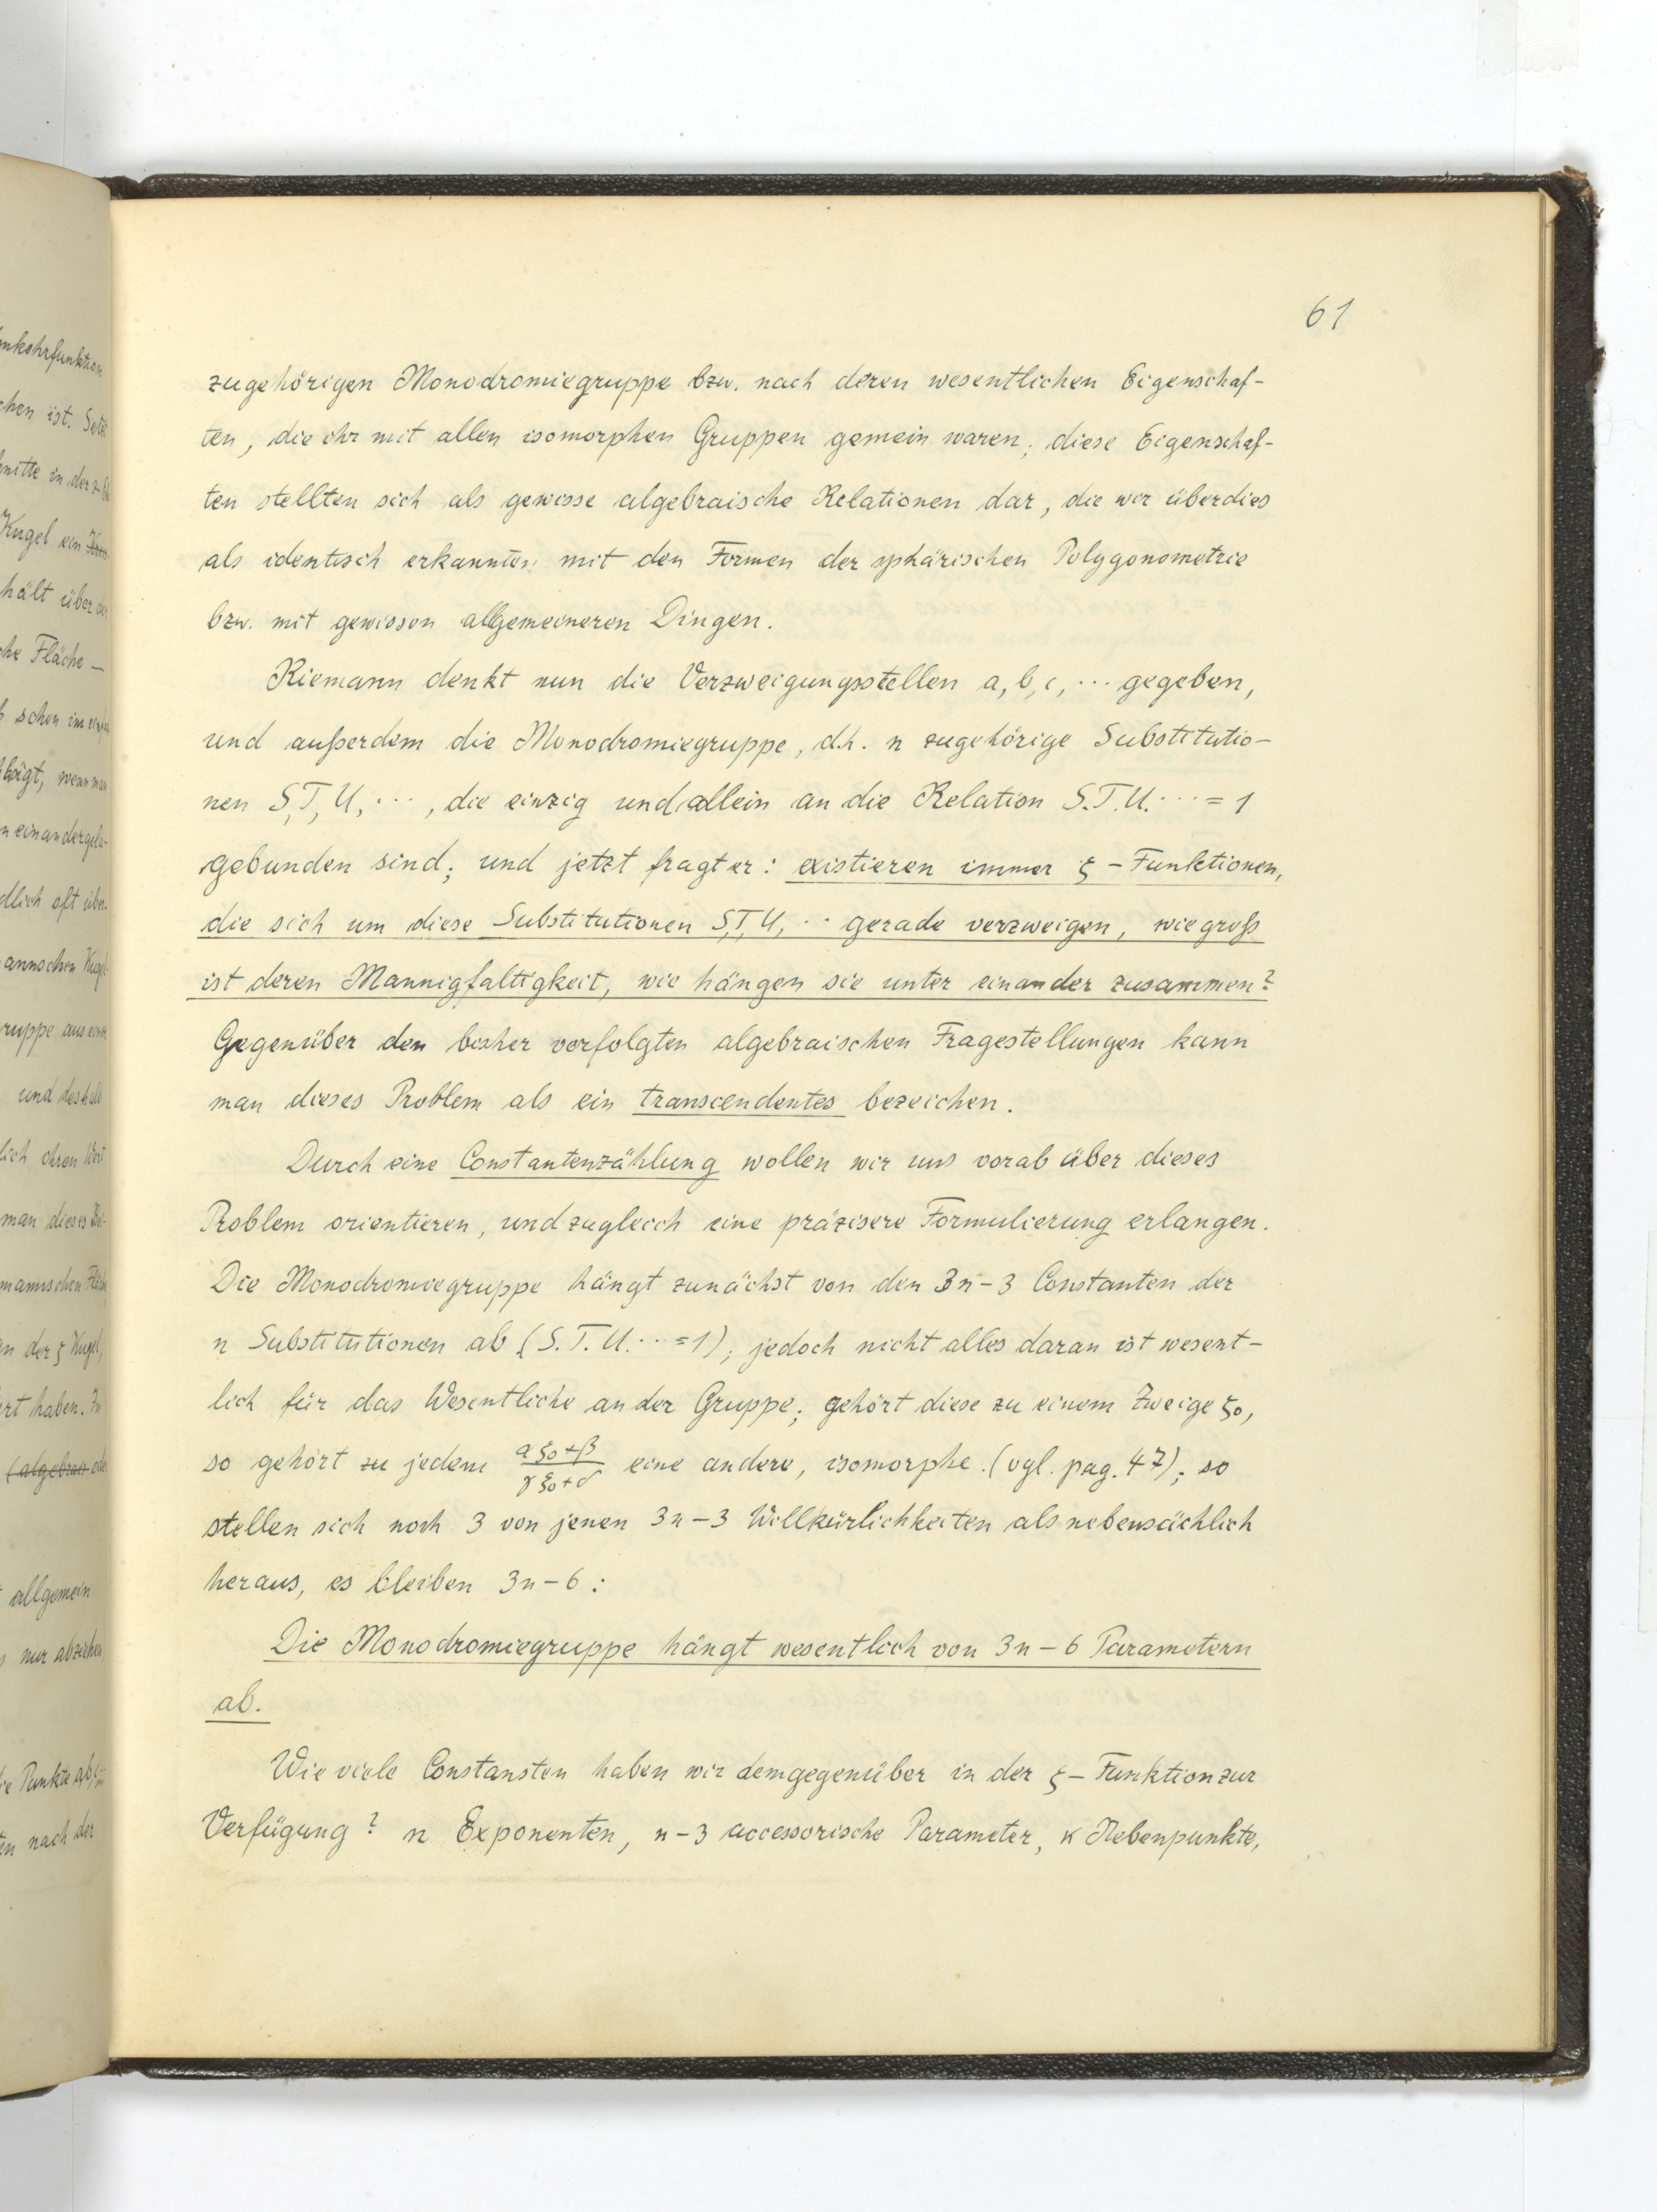 61
zugehörigen Monodromiegruppe bzw. nach deren wesentlichen Eigenschaf-
ten, die ihr mit allen isomorphen Gruppen gemein waren; diese Eigenschaf-
ten stellten sich als gewisse algebraische Relationen dar, die wir überdies
als identisch erkannten mit den Formen der sphärischen Polygonometrie
bzw. mit gewissen allgemeineren Dingen.
Riemann denkt nun die Verzweigungsstellen a, b, c, ··· gegeben,
und außerdem die Monodromiegruppe, d.h. n zugehörige Substitutio-
nen S, T, U, ··· , die einzig und allein an die Relation S.T.U. ··· = 1
gebunden sind; und jetzt fragt er: existieren immer ξ - Funktionen,
die sich um diese Substitutionen S, T, U, ·· gerade verzweigen, wie groß
ist deren Mannigfaltigkeit, wie hängen sie unter einander zusammen?
Gegenüber den bisher verfolgten algebraischen Fragestellungen kann
man dieses Problem als ein transcendentes bezeichen.
Durch eine Constantenzählung wollen wir uns vorab über dieses
Problem orientieren, und zugleich eine präzisere Formulierung erlangen.
Die Monodromiegruppe hängt zunächst von den 3n - 3 Constanten der
n Substitutionen ab (S. T. U. ·· = 1); jedoch nicht alles daran ist wesent-
lich für das Wesentliche an der Gruppe; gehört diese zu einem Zweige ξ₀,
so gehört zu jedem (αξ₀+β)/(γξ₀+δ) eine andere, isomorphe. (vgl. pag. 47); so
stellen sich noch 3 von jenen 3n - 3 Willkürlichkeiten als nebensächlich
heraus, es bleiben 3n - 6 :
Die Monodromiegruppe hängt wesentlich von 3n - 6 Parametern
ab.
Wie viele Constansten haben wir demgegenüber in der ξ - Funktion zur
Verfügung? n Exponenten, n - 3 accessorische Parameter, κ Nebenpunkte,